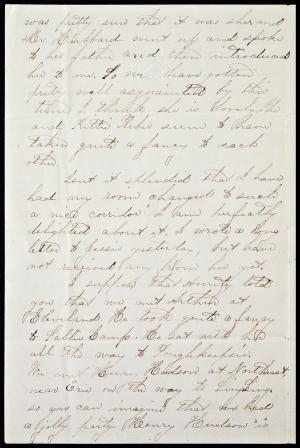 was pretty sure that it was she and
Mr Hubbard went up and spoke
to her father and then introduced
her to me. So we have gotten
pretty well acquainted by this
time I think she is lovely. She
and Kittie seem to have
taken quite a fancy to each
other.
Isnt it splendid that I have
had my room changed to such
a nice corridor I am perfectly
delighted about it. I wrote a long
letter to Bessie yesterday, but have
not recieved any from her yet.
I suppose that Aunty told
you that we met Arthur at
Cleveland. He took quite a fancy
to Sallie Camp. He sat with her
all the way to Poughkeepsie.
We met Henry Hudson at Northeast,
near Erie on the way to
so you can imagine that we had
a jolly party. Henry Hudson is